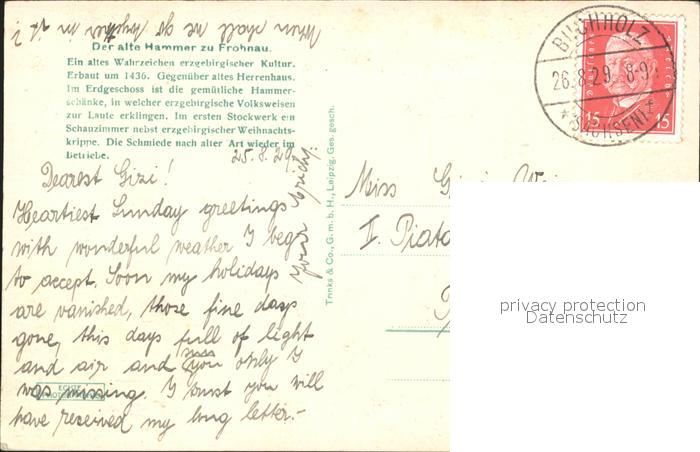 When shall we go together in it?
Der alte Hammer zu Frohnau.
Ein altes Wahrzeichen erzgebirgischer Kultur.
Erbaut um 1436. Gegenüber altes Herrenhaus.
Im Erdgeschoss ist die gemütliche Hammer-
schänke, in welcher erzgebirgische Volksweisen
zur Laute erklingen. Im ersten Stockwerk ein
Schauzimmer nebst erzgebirgischer Weihnachts-
krippe. Die Schmiede nach alter Art wieder im
Betriebe.
25.8.29.
Dearest Gizi!
Heartiest Sunday greetings
with wonderful weather I beg
to accept. Soon my holidays
are vanished, those fine days
gone, this days full of light
and air and you only I
was missing. I trust you will
have received my long letter.-
your Erich.
Trinks & Co., G. m. b. H., Leipzig. Ges. gesch.
BUCHHOLZ
26.8.29. 8-9
* (SACHSEN) *
15 15
Miss
II. Piata
privacy protection
Datenschutz
ECHTE